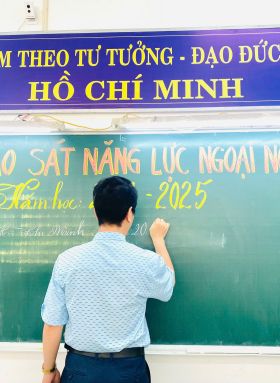 M THEO TƯ TƯỞNG - ĐẠO ĐỨC
HỒ CHÍ MINH
ẢO SÁT NĂNG LỰC NGOẠI N
Năm học: 2 - 2025
Minh, 20